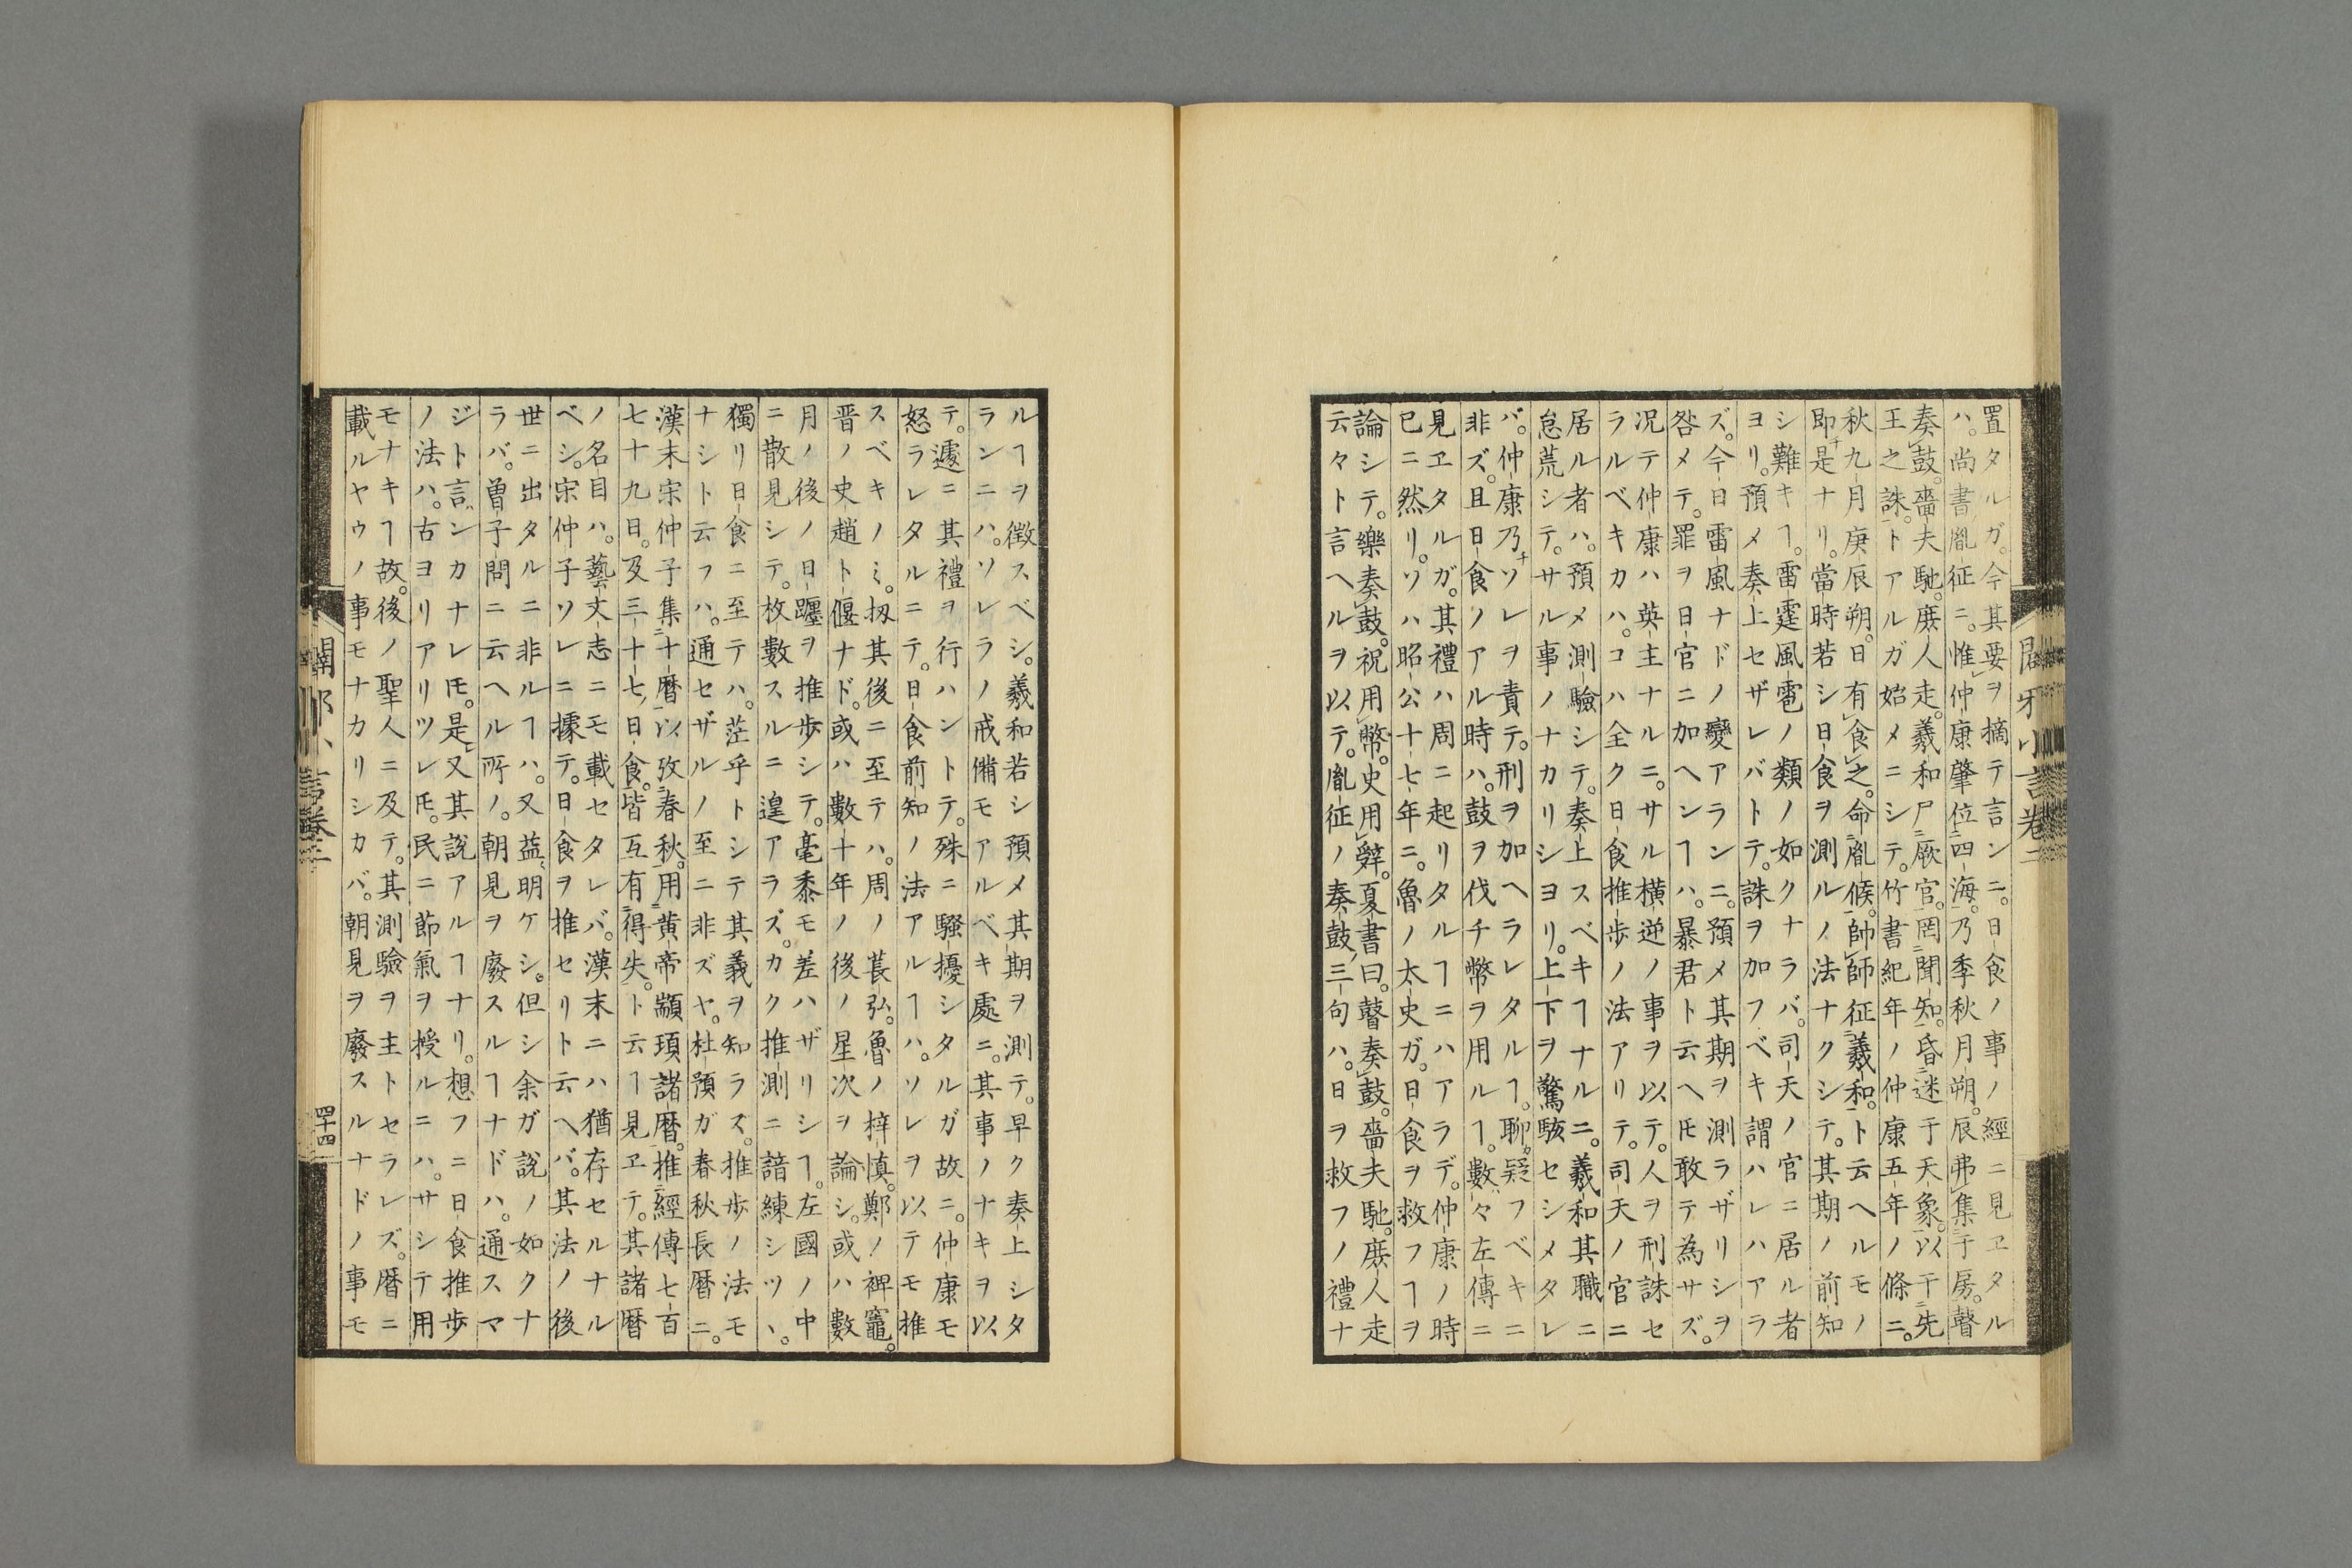 置タルガ。今其要ヲ摘テ言ンニ。日食ノ事ノ經ニ見ヱタル
ハ。尚書胤征ニ。惟仲康肇位四海。乃季秋月朔。辰弗集于房。瞽
奏鼓。嗇夫馳。庶人走。羲和尸厥官。罔聞知。昏迷于天象。以干先
王之誅。トアルガ始メニシテ。竹書紀年ノ仲康五年ノ條ニ。
秋九月庚辰朔。日有食之。命胤候。帥師征羲和。ト云ヘルモノ
即チ是ナリ。當時若シ日食ヲ測ルノ法ナクシテ。其期ノ前知
シ難キヿ。雷霆風雹ノ類ノ如クナラバ。司天ノ官ニ居ル者
ヨリ。預メ奏上セザレバトテ。誅ヲ加フベキ謂ハレハアラ
ズ。今日雷風ナドノ變アランニ。預メ其期ヲ測ラザリシヲ
咎メテ。罪ヲ日官ニ加ヘンヿハ。暴君ト云ヘ𪜈敢テ為サズ。
况テ仲康ハ英主ナルニ。サル横逆ノ事ヲ以テ。人ヲ刑誅セ
ラルベキカハ。コハ全ク日食推歩ノ法アリテ。司天ノ官ニ
居ル者ハ。預メ測驗シテ。奏上スベキヿナルニ。羲和其職ニ
怠荒シテ。サル事ノナカリシヨリ。上下ヲ驚駭セシメタレ
バ。仲康乃チソレヲ責テ。刑ヲ加ヘラレタルヿ。聊疑フベキニ
非ズ。且日食ノアル時ハ。鼓ヲ伐チ幣ヲ用ルヿ。數々左傳ニ
見ヱタルガ。其禮ハ周ニ起リタルヿニハアラデ。仲康ノ時
已ニ然リ。ソハ昭公十七年ニ。魯ノ太史ガ。日食ヲ救フヿヲ
論シテ。樂奏鼓。祝用幣。史用辭。夏書曰。瞽奏鼓。嗇夫馳。庶人走
云々ト言ヘルヲ以テ。胤征ノ奏鼓三句ハ。日ヲ救フノ禮ナ
ルヿヲ徴スベシ。羲和若シ預メ其期ヲ測テ。早ク奏上シタ
ランニハ。ソレラノ戒備モアルベキ處ニ。其事ノナキヲ以
テ。遽ニ其禮ヲ行ハントテ。殊ニ騷擾シタルガ故ニ。仲康モ
怒ラレタルニテ。日食前知ノ法アルヿハ。ソレヲ以テモ推
スベキノミ。扨其後ニ至テハ。周ノ萇弘。魯ノ梓慎。鄭ノ裨竈。
晋ノ史趙ト偃ナド。或ハ數十年ノ後ノ星次ヲ論シ。或ハ數
月ノ後ノ日躔ヲ推歩シテ。毫黍モ差ハザリシヿ。左國ノ中
ニ散見シテ。枚數スルニ遑アラズ。カク推測ニ諳練シツヽ。
獨リ日食ニ至テハ。茫乎トシテ其義ヲ知ラズ。推歩ノ法モ
ナシト云フハ。通セザルノ至ニ非ズヤ。杜預ガ春秋長暦ニ。
漢末宋仲子集十暦以攷春秋。用黄帝顓頊諸暦。推經傳七百
七十九日。及三十七日食。皆互有得失。ト云ヿ見ヱテ。其諸暦
ノ名目ハ。藝文志ニモ載セタレバ。漢末ニハ猶存セルナル
ベシ。宋仲子ソレニ據テ。日食ヲ推セリト云ヘバ。其法ノ後
世ニ出タルニ非ルヿハ。又益明ケシ。但シ余ガ説ノ如クナ
ラバ。曽子問ニ云ヘル所ノ。朝見ヲ廢スルヿナドハ。通スマ
ジト言ンカナレ𪜈。是又其說アルヿナリ。想フニ日食推歩
ノ法ハ。古ヨリアリツレ𪜈。民ニ節氣ヲ授ルニハ。サシテ用
モナキヿ故。後ノ聖人ニ及テ。其測驗ヲ主トセラレズ。暦ニ
載ルヤウノ事モナカリシカバ。朝見ヲ廢スルナドノ事モ
四十四